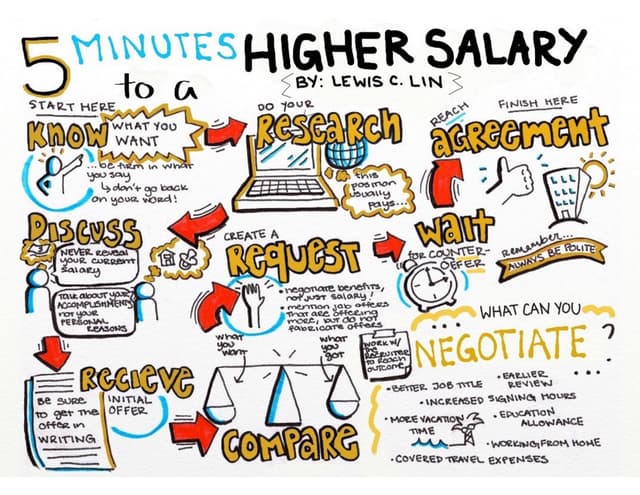 5 MINUTES
to a
HIGHER SALARY
BY: LEWIS C. LIN
START HERE
KNOW
WHAT YOU
WANT
...be firm in what
you say
don't go back
on your word!
DO YOUR
ReseaRch
this
position
usually
pays...
DIscuss
NEVER reveal
your current
salary
Talk about your
ACCOMPLISHMENTS
not your
PERSONAL
REASONS
Recieve
INITIAL
OFFER
Be sure
to get the
offer in
WRITING
comPaRe
what
you
want
what
you
got
CREATE A
RequesT
negotiate benefits,
not just salary!
mention job offers
that are offering
more, but do not
fabricate offers
work w/
the
recruiter
to reach
outcome
WaIt
for COUNTER-
OFFER
REACH
aGReemenT
FINISH HERE
Remember...
ALWAYS BE POLITE
WHAT CAN YOU
NEGOTIATE?
• BETTER JOB TITLE
• EARLIER
REVIEW
• INCREASED SIGNING HOURS
• MORE VACATION
TIME
• EDUCATION
ALLOWANCE
• WORKING FROM HOME
• COVERED TRAVEL EXPENSES